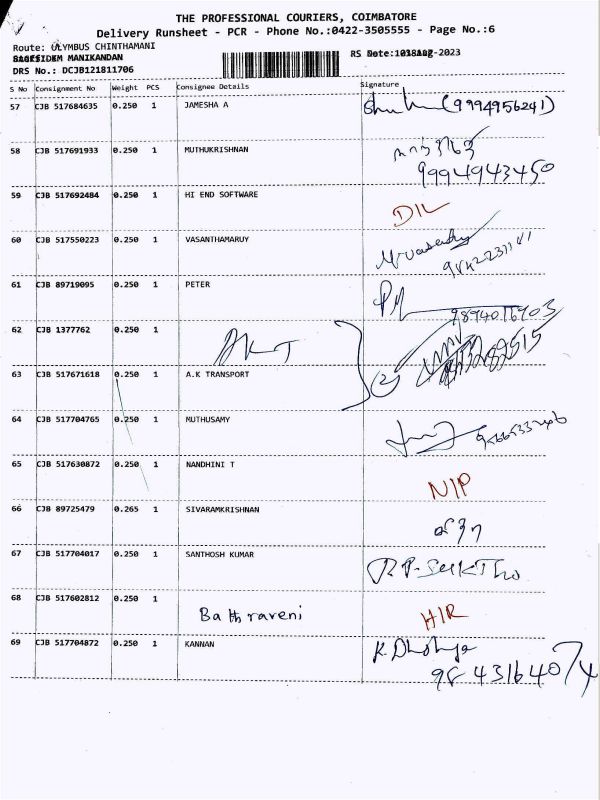 THE PROFESSIONAL COURIERS, COIMBATORE
Delivery Runsheet - PCR - Phone No.:0422-3505555 - Page No.:6
Route: OLYMBUS CHINTHAMANI
MANIKANDAN
RS Date: -2023
DRS No.: DCJB121811706
S No Consignment No Weight PCS Consignee Details Signature
57 CJB 517684635 0.250 1 JAMESHA A (9994956241)
58 CJB 517691933 0.250 1 MUTHUKRISHNAN
9994943450
59 CJB 517692484 0.250 1 HI END SOFTWARE
D/L
60 CJB 517550223 0.250 1 VASANTHAMARUY
61 CJB 89719095 0.250 1 PETER
62 CJB 1377762 0.250 1
AKT
63 CJB 517671618 0.250 1 A.K TRANSPORT (2)
64 CJB 517704765 0.250 1 MUTHUSAMY
65 CJB 517630872 0.250 1 NANDHINI T
N/P
66 CJB 89725479 0.265 1 SIVARAMKRISHNAN
67 CJB 517704017 0.250 1 SANTHOSH KUMAR
68 CJB 517602812 0.250 1
Bathraveni H/R
69 CJB 517704872 0.250 1 KANNAN
9843164074